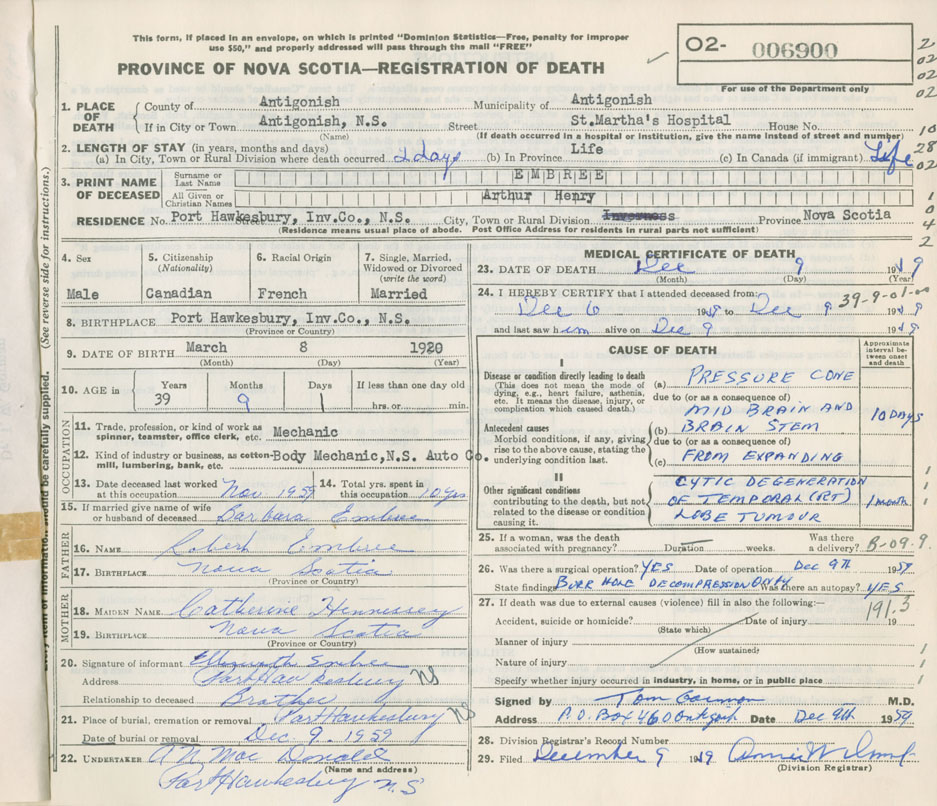 This form, if placed in an envelope, on which is printed "Dominion Statistics—Free, penalty for improper
use $50," and properly addressed will pass through the mail "FREE"
PROVINCE OF NOVA SCOTIA—REGISTRATION OF DEATH
O2- 006900
For use of the Department only
2
02
02
02
10
28
02
1
0
4
2
1. PLACE OF DEATH
County of Antigonish Municipality of Antigonish
If in City or Town Antigonish, N.S. Street St.Martha's Hospital House No.
(Name) (If death occurred in a hospital or institution, give the name instead of street and number)
2. LENGTH OF STAY (in years, months and days)
(a) In City, Town or Rural Division where death occurred 2 days (b) In Province Life (c) In Canada (if immigrant) Life
3. PRINT NAME OF DECEASED
Surname or Last Name EMBREE
All Given or Christian Names Arthur Henry
RESIDENCE No. Port Hawkesbury, Inv.Co., N.S. Street City, Town or Rural Division Inverness Province Nova Scotia
(Residence means usual place of abode. Post Office Address for residents in rural parts not sufficient)
(See reverse side for instructions.)
should be carefully supplied.
4. Sex
Male
5. Citizenship (Nationality)
Canadian
6. Racial Origin
French
7. Single, Married, Widowed or Divorced (write the word)
Married
8. BIRTHPLACE Port Hawkesbury, Inv.Co., N.S.
(Province or Country)
9. DATE OF BIRTH March 8 1920
(Month) (Day) (Year)
10. AGE in Years Months Days If less than one day old
39 9 1 hrs. or min.
OCCUPATION
11. Trade, profession, or kind of work as spinner, teamster, office clerk, etc. Mechanic
12. Kind of industry or business, as cotton-mill, lumbering, bank, etc. Body Mechanic,N.S. Auto Co.
13. Date deceased last worked at this occupation Nov. 1959
14. Total yrs. spent in this occupation 10 yrs
15. If married give name of wife or husband of deceased Barbara Embree
FATHER
16. NAME Robert Embree
17. BIRTHPLACE Nova Scotia
(Province or Country)
MOTHER
18. MAIDEN NAME Catherine Hennessey
19. BIRTHPLACE Nova Scotia
(Province or Country)
20. Signature of informant Embree
Address Port Hawkesbury NS
Relationship to deceased Brother
21. Place of burial, cremation or removal Port Hawkesbury NS
Date of burial or removal Dec 9. 1959
22. UNDERTAKER A N Mac Donald
(Name and address)
Port Hawkesbury N.S
MEDICAL CERTIFICATE OF DEATH
23. DATE OF DEATH Dec 9 19
(Month) (Day) (Year)
24. I HEREBY CERTIFY that I attended deceased from:
39-9-01-00
Dec 6 19 to Dec 9 19
and last saw him alive on Dec 9 19
CAUSE OF DEATH
Approximate interval between onset and death
I
Disease or condition directly leading to death
(This does not mean the mode of dying, e.g., heart failure, asthenia, etc. It means the disease, injury, or complication which caused death.)
(a) PRESSURE CONE
due to (or as a consequence of)
MID BRAIN AND
Antecedent causes
Morbid conditions, if any, giving rise to the above cause, stating the underlying condition last.
(b) BRAIN STEM 10 DAYS
due to (or as a consequence of)
(c) FROM EXPANDING
II
Other significant conditions
contributing to the death, but not related to the disease or condition causing it.
CYTIC DEGENERATION
OF TEMPORAL (RT) 1 month
LOBE TUMOUR
25. If a woman, was the death associated with pregnancy? Duration weeks. Was there a delivery? B-09.9
26. Was there surgical operation? YES Date of operation Dec 9th 1959
State findings BURR HOLE DECOMPRESSION ONLY Was there an autopsy? YES
191.3
27. If death was due to external causes (violence) fill in also the following:—
Accident, suicide or homicide? Date of injury 19
(State which)
Manner of injury
(How sustained)
Nature of injury
Specify whether injury occurred in industry, in home, or in public place
Signed by Tom Gorman M.D.
Address P.O. Box 460 Antigonish Date Dec 9th 1959
28. Division Registrar's Record Number
29. Filed December 9 19
(Division Registrar)